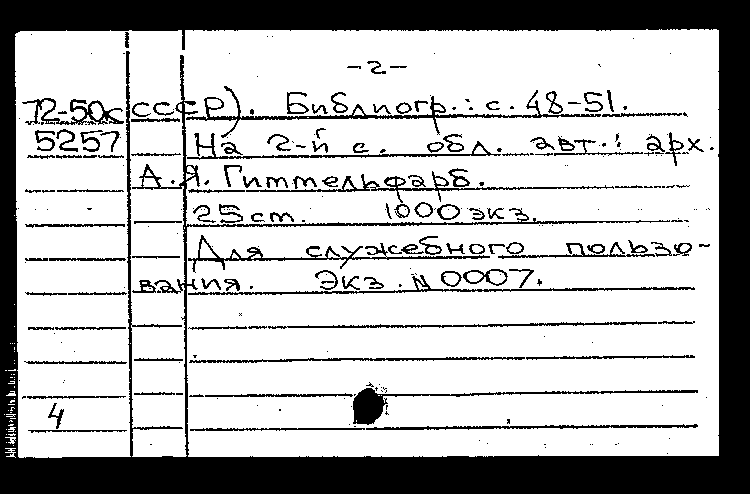 -2-
72-50к СССР). Библиогр.: с. 48-51.
5257 На 2-й с. обл. авт.: арх.
А.Я. Гиттельфарб.
25 ст. 1000 экз.
Для служебного пользо-
вания. Экз. №0007.
4